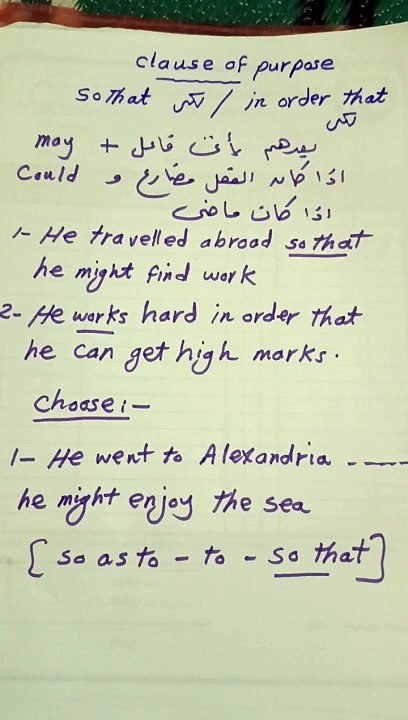 clause of purpose
so that لكى / in order that
لكى
بعدهم يأتى فاعل + may
اذا كان الفعل مضارع و Could
اذا كان ماضى
1- He travelled abroad so that
he might find work
2- He works hard in order that
he can get high marks.
Choose:-
1- He went to Alexandria -----
he might enjoy the sea
[ so as to - to - so that ]